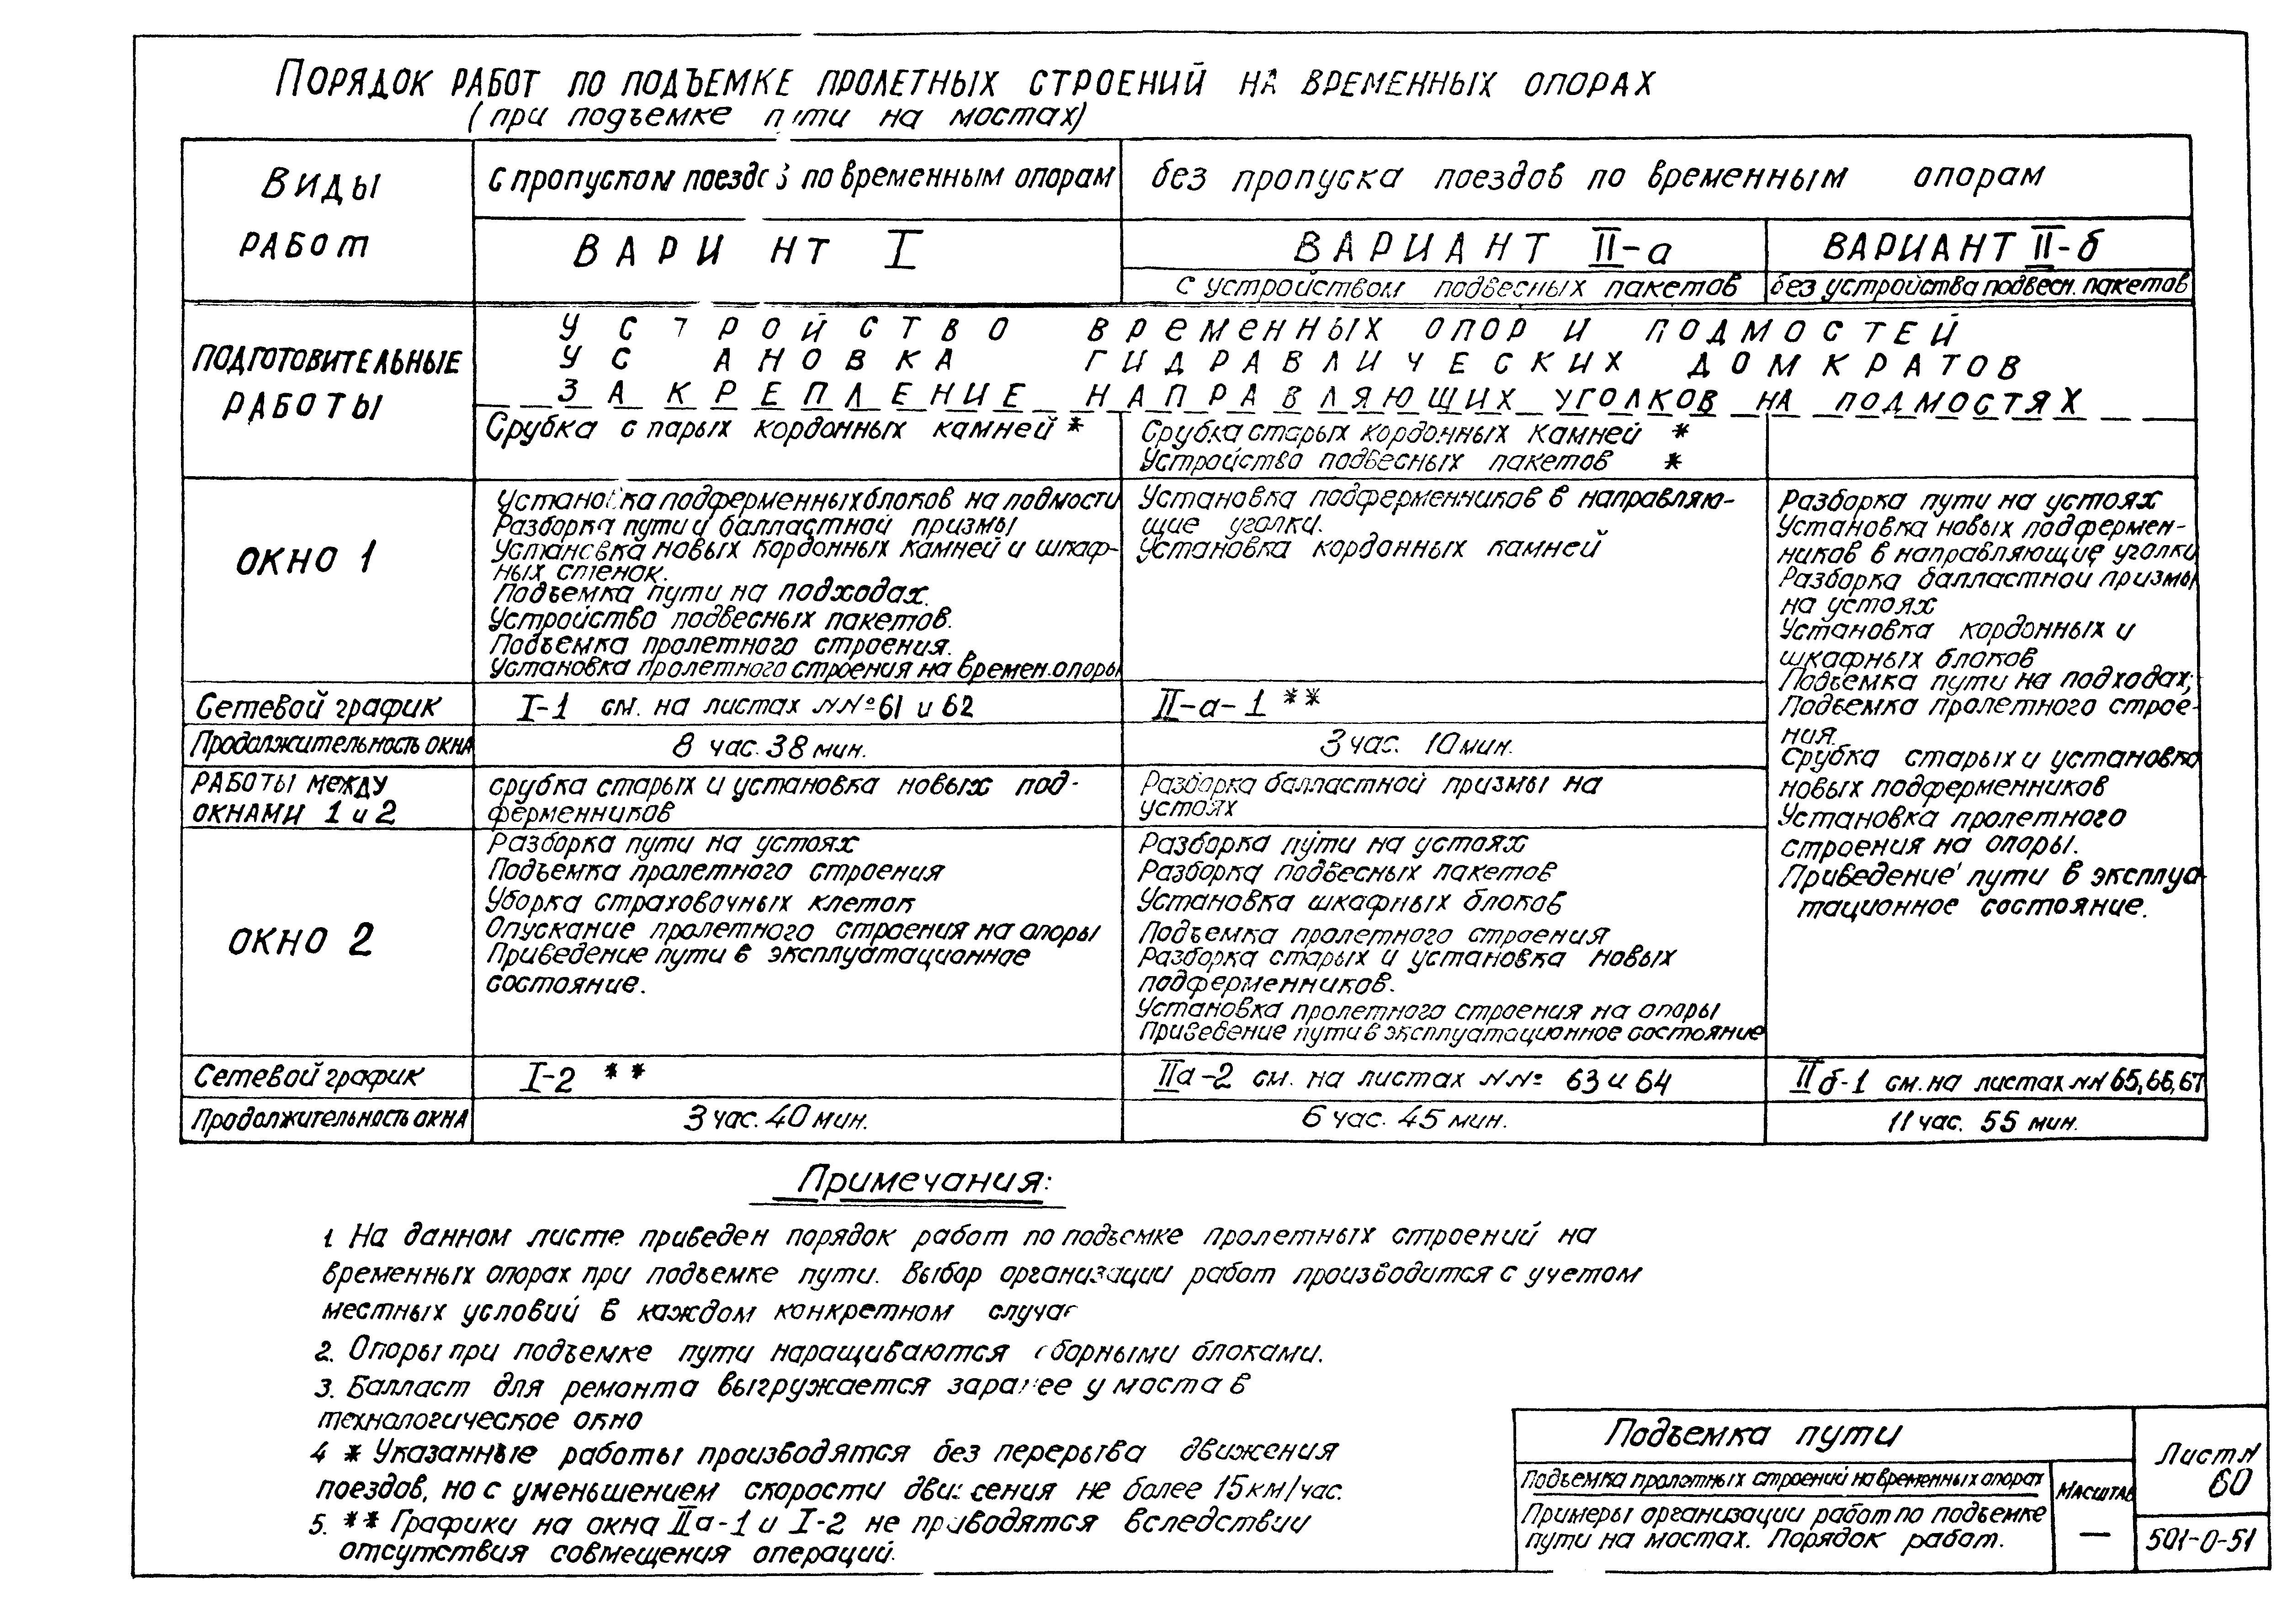 Порядок работ по подъемке пролетных строений на временных опорах
(при подъемке пути на мостах)
Виды
работ
с пропуском поездов по временным опорам
без пропуска поездов по временным опорам
ВАРИ НТ I
ВАРИАНТ II-а
ВАРИАНТ II-б
с устройством подвесных пакетов
без устройства подвесн. пакетов
ПОДГОТОВИТЕЛЬНЫЕ
РАБОТЫ
УСТРОЙСТВО ВРЕМЕННЫХ ОПОР И ПОДМОСТЕЙ
УС АНОВКА ГИДРАВЛИЧЕСКИХ ДОМКРАТОВ
ЗАКРЕПЛЕНИЕ НАПРАВЛЯЮЩИХ УГОЛКОВ НА ПОДМОСТЯХ
Срубка старых кордонных камней *
Срубка старых кордонных камней *
Устройство подвесных пакетов *
ОКНО 1
Установка подферменных блоков на подмости
Разборка пути и балластной призмы
Установка новых кордонных камней и шкаф-
ных стенок.
Подъемка пути на подходах.
Устройство подвесных пакетов.
Подъемка пролетного строения.
Установка пролетного строения на времен. опоры
Установка подферменников в направляю-
щие уголки.
Установка кордонных камней
Разборка пути на устоях
Установка новых подфермен-
ников в направляющие уголки
Разборка балластной призмы
на устоях
Установка кордонных и
шкафных блоков
Подъемка пути на подходах;
Подъемка пролетного строе-
ния.
Срубка старых и установка
новых подферменников
Установка пролетного
строения на опоры.
Приведение пути в эксплуа-
тационное состояние.
Сетевой график
I-1 см. на листах NN° 61 и 62
II-а-1 **
Продолжительность окна
8 час. 38 мин.
3 час. 10 мин.
РАБОТЫ МЕЖДУ
ОКНАМИ 1 и 2
срубка старых и установка новых под-
ферменников
Разборка балластной призмы на
устоях
ОКНО 2
Разборка пути на устоях
Подъемка пролетного строения
Уборка страховочных клеток
Опускание пролетного строения на опоры
Приведение пути в эксплуатационное
состояние.
Разборка пути на устоях
Разборка подвесных пакетов
Установка шкафных блоков
Подъемка пролетного строения
Разборка старых и установка новых
подферменников.
Установка пролетного строения на опоры
Приведение пути в эксплуатационное состояние
Сетевой график
I-2 **
IIа-2 см. на листах NN° 63 и 64
IIб-1 см. на листах NN 65,66,67
Продолжительность окна
3 час. 40 мин.
6 час. 45 мин.
11 час. 55 мин.
Примечания:
1 На данном листе приведен порядок работ по подъемке пролетных строений на
временных опорах при подъемке пути. Выбор организации работ производится с учетом
местных условий в каждом конкретном случае
2. Опоры при подъемке пути наращиваются сборными блоками.
3. Балласт для ремонта выгружается заранее у моста в
технологическое окно
4 * Указанные работы производятся без перерыва движения
поездов, но с уменьшением скорости движения не более 15км/час.
5. ** Графики на окна IIа-1 и I-2 не приводятся вследствии
отсутствия совмещения операций.
Подъемка пути
Подъемка пролетных строений на временных опорах
Примеры организации работ по подъемке
пути на мостах. Порядок работ.
Масштаб
—
Лист N
60
501-0-51